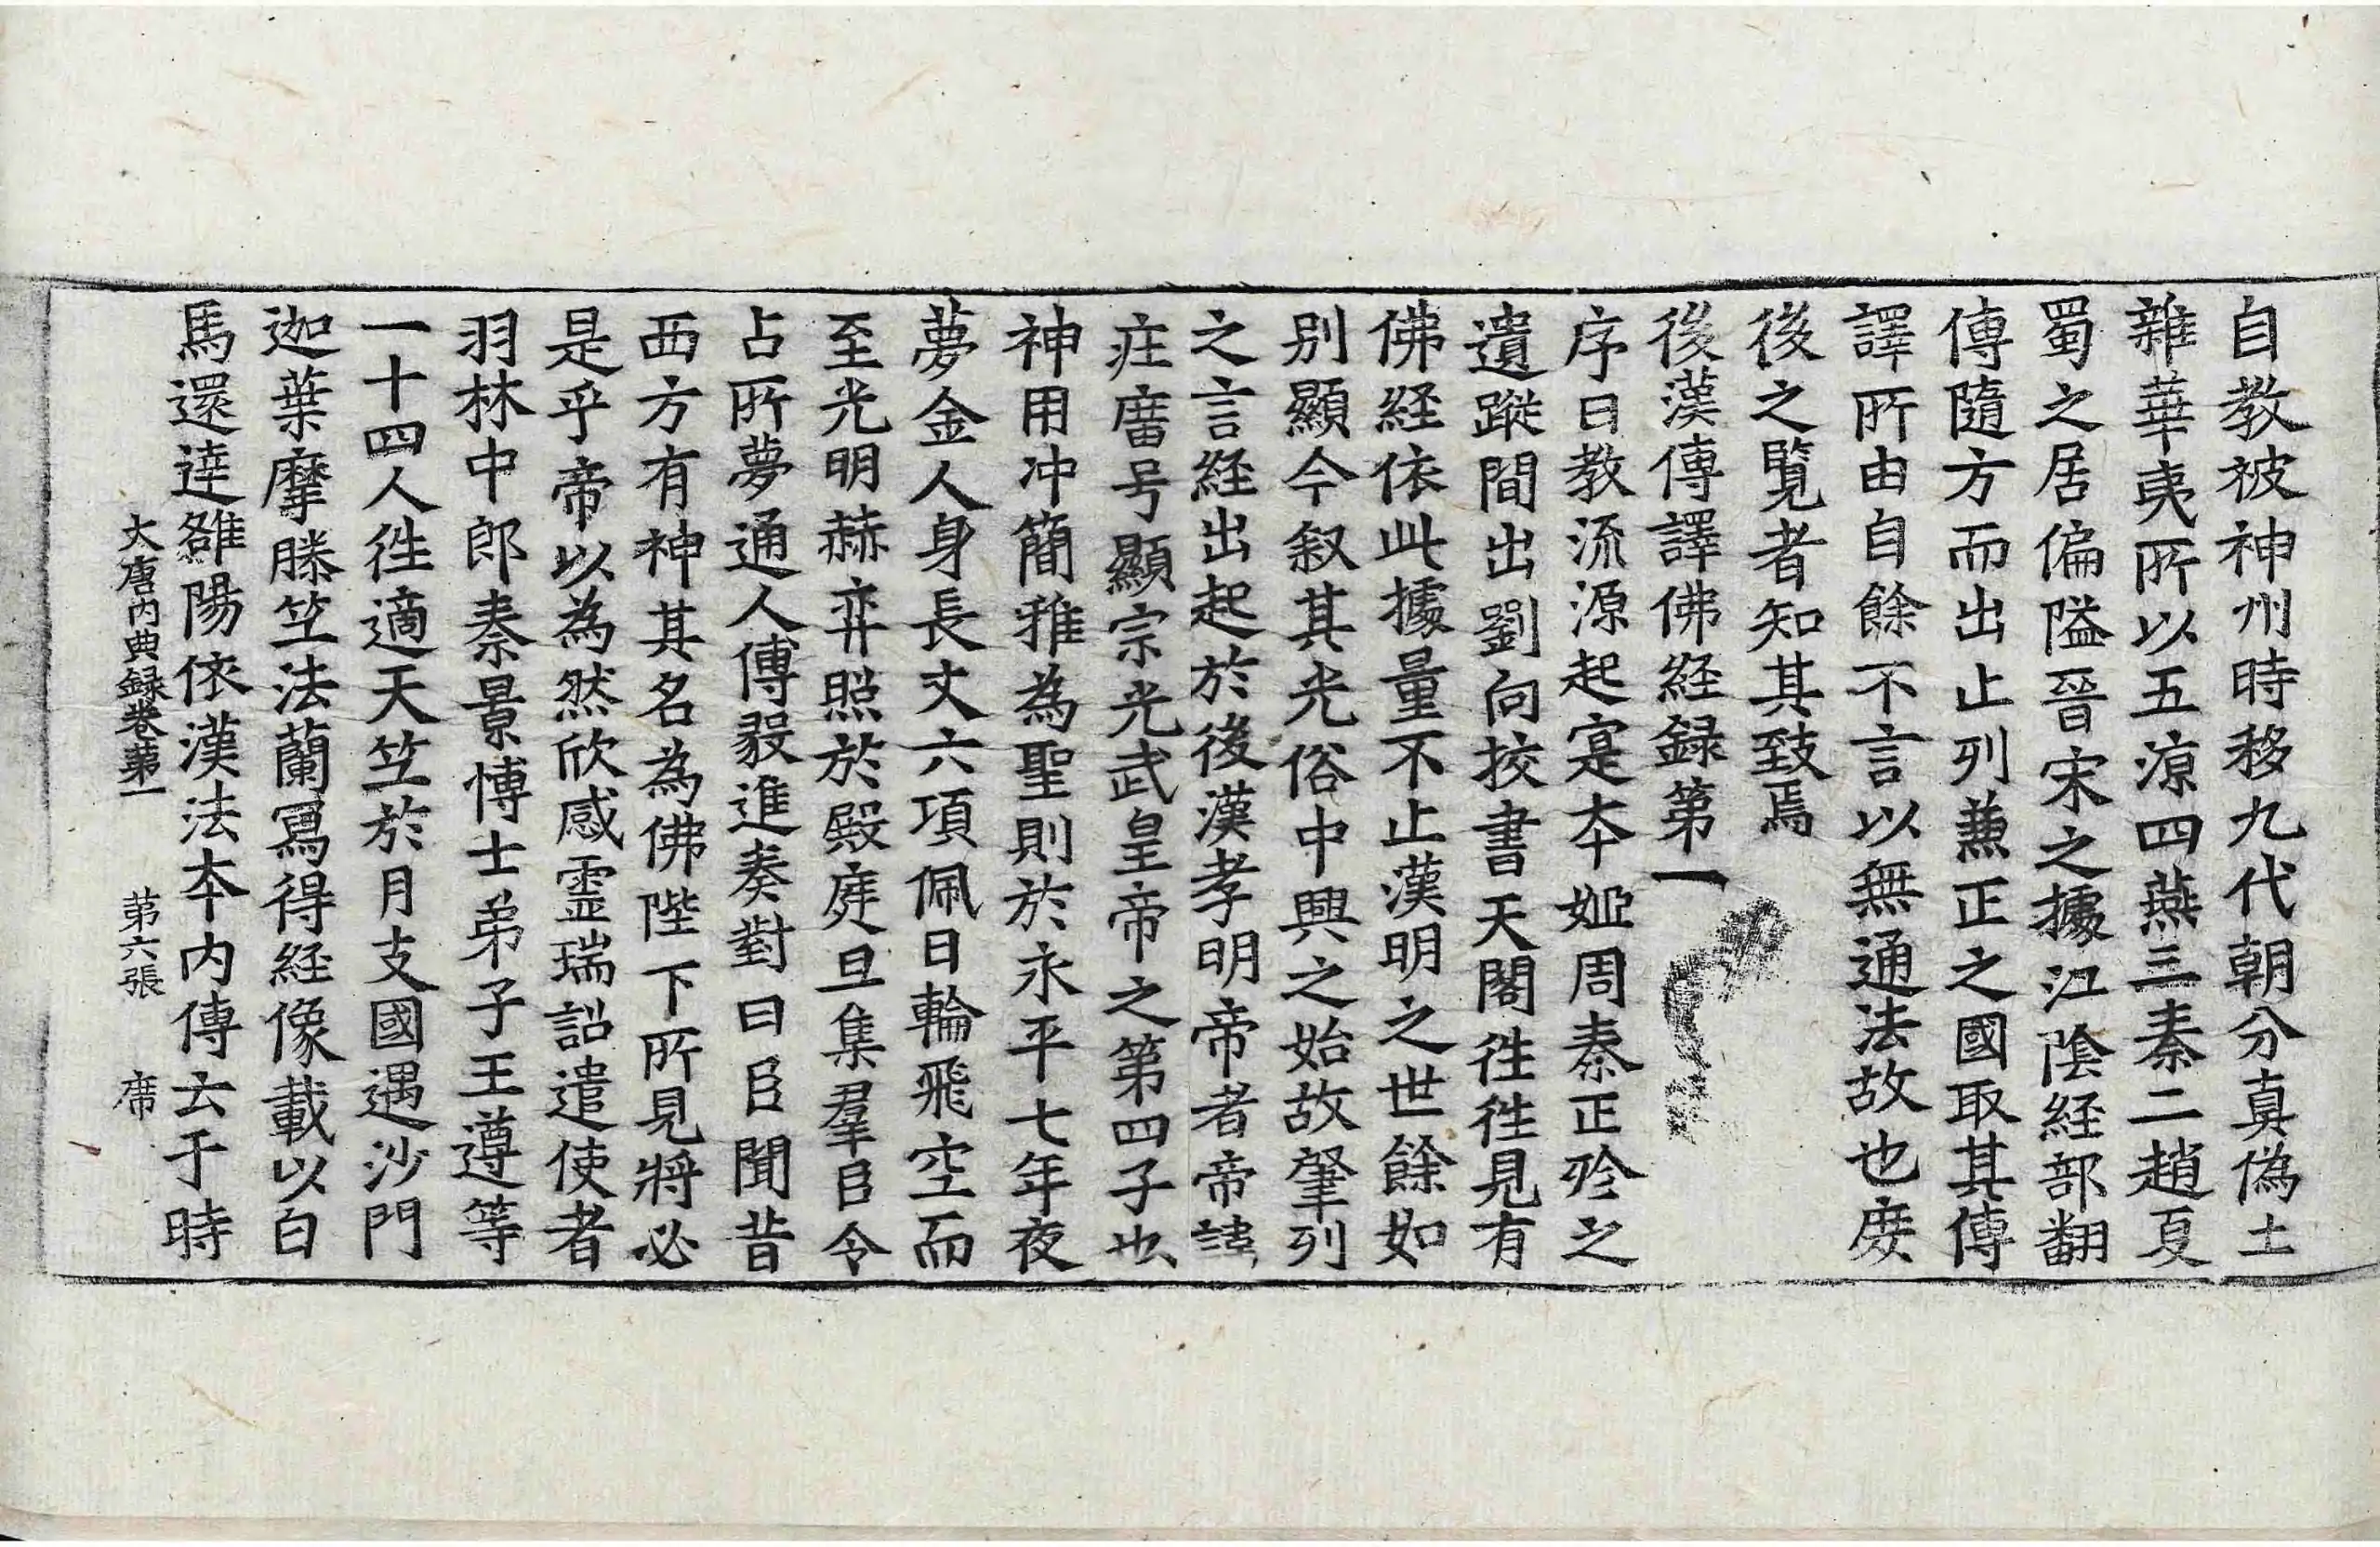 自教被神州時移九代朝分真偽土
雜華夷所以五涼四燕三秦二趙夏
蜀之居偏隘晉宋之據江陰経部翻
傳隨方而出止列兼正之國取其傳
譯所由自餘不言以無通法故也庶
後之覽者知其致焉
後漢傳譯佛経録第一
序曰教流源起寔本姬周秦正殄之
遺蹤間出劉向挍書天閣徃徃見有
佛経依此據量不止漢明之世餘如
別顯今叙其光俗中興之始故肇列
之言経出起於後漢孝明帝者帝諱
庄廟号顯宗光武皇帝之第四子也
神用冲簡雅為聖則於永平七年夜
夢金人身長丈六項佩日輪飛空而
至光明赫弈照於殿庭旦集羣臣令
占所夢通人傅毅進奏對曰臣聞昔
西方有神其名為佛陛下所見將必
是乎帝以為然欣感霊瑞詔遣使者
羽林中郎秦景博士弟子王遵等
一十四人徃適天竺於月支國遇沙門
迦葉摩騰竺法蘭寫得経像載以白
馬還達雒陽依漢法本内傳云于時
大唐内典録卷第一　第六張　席